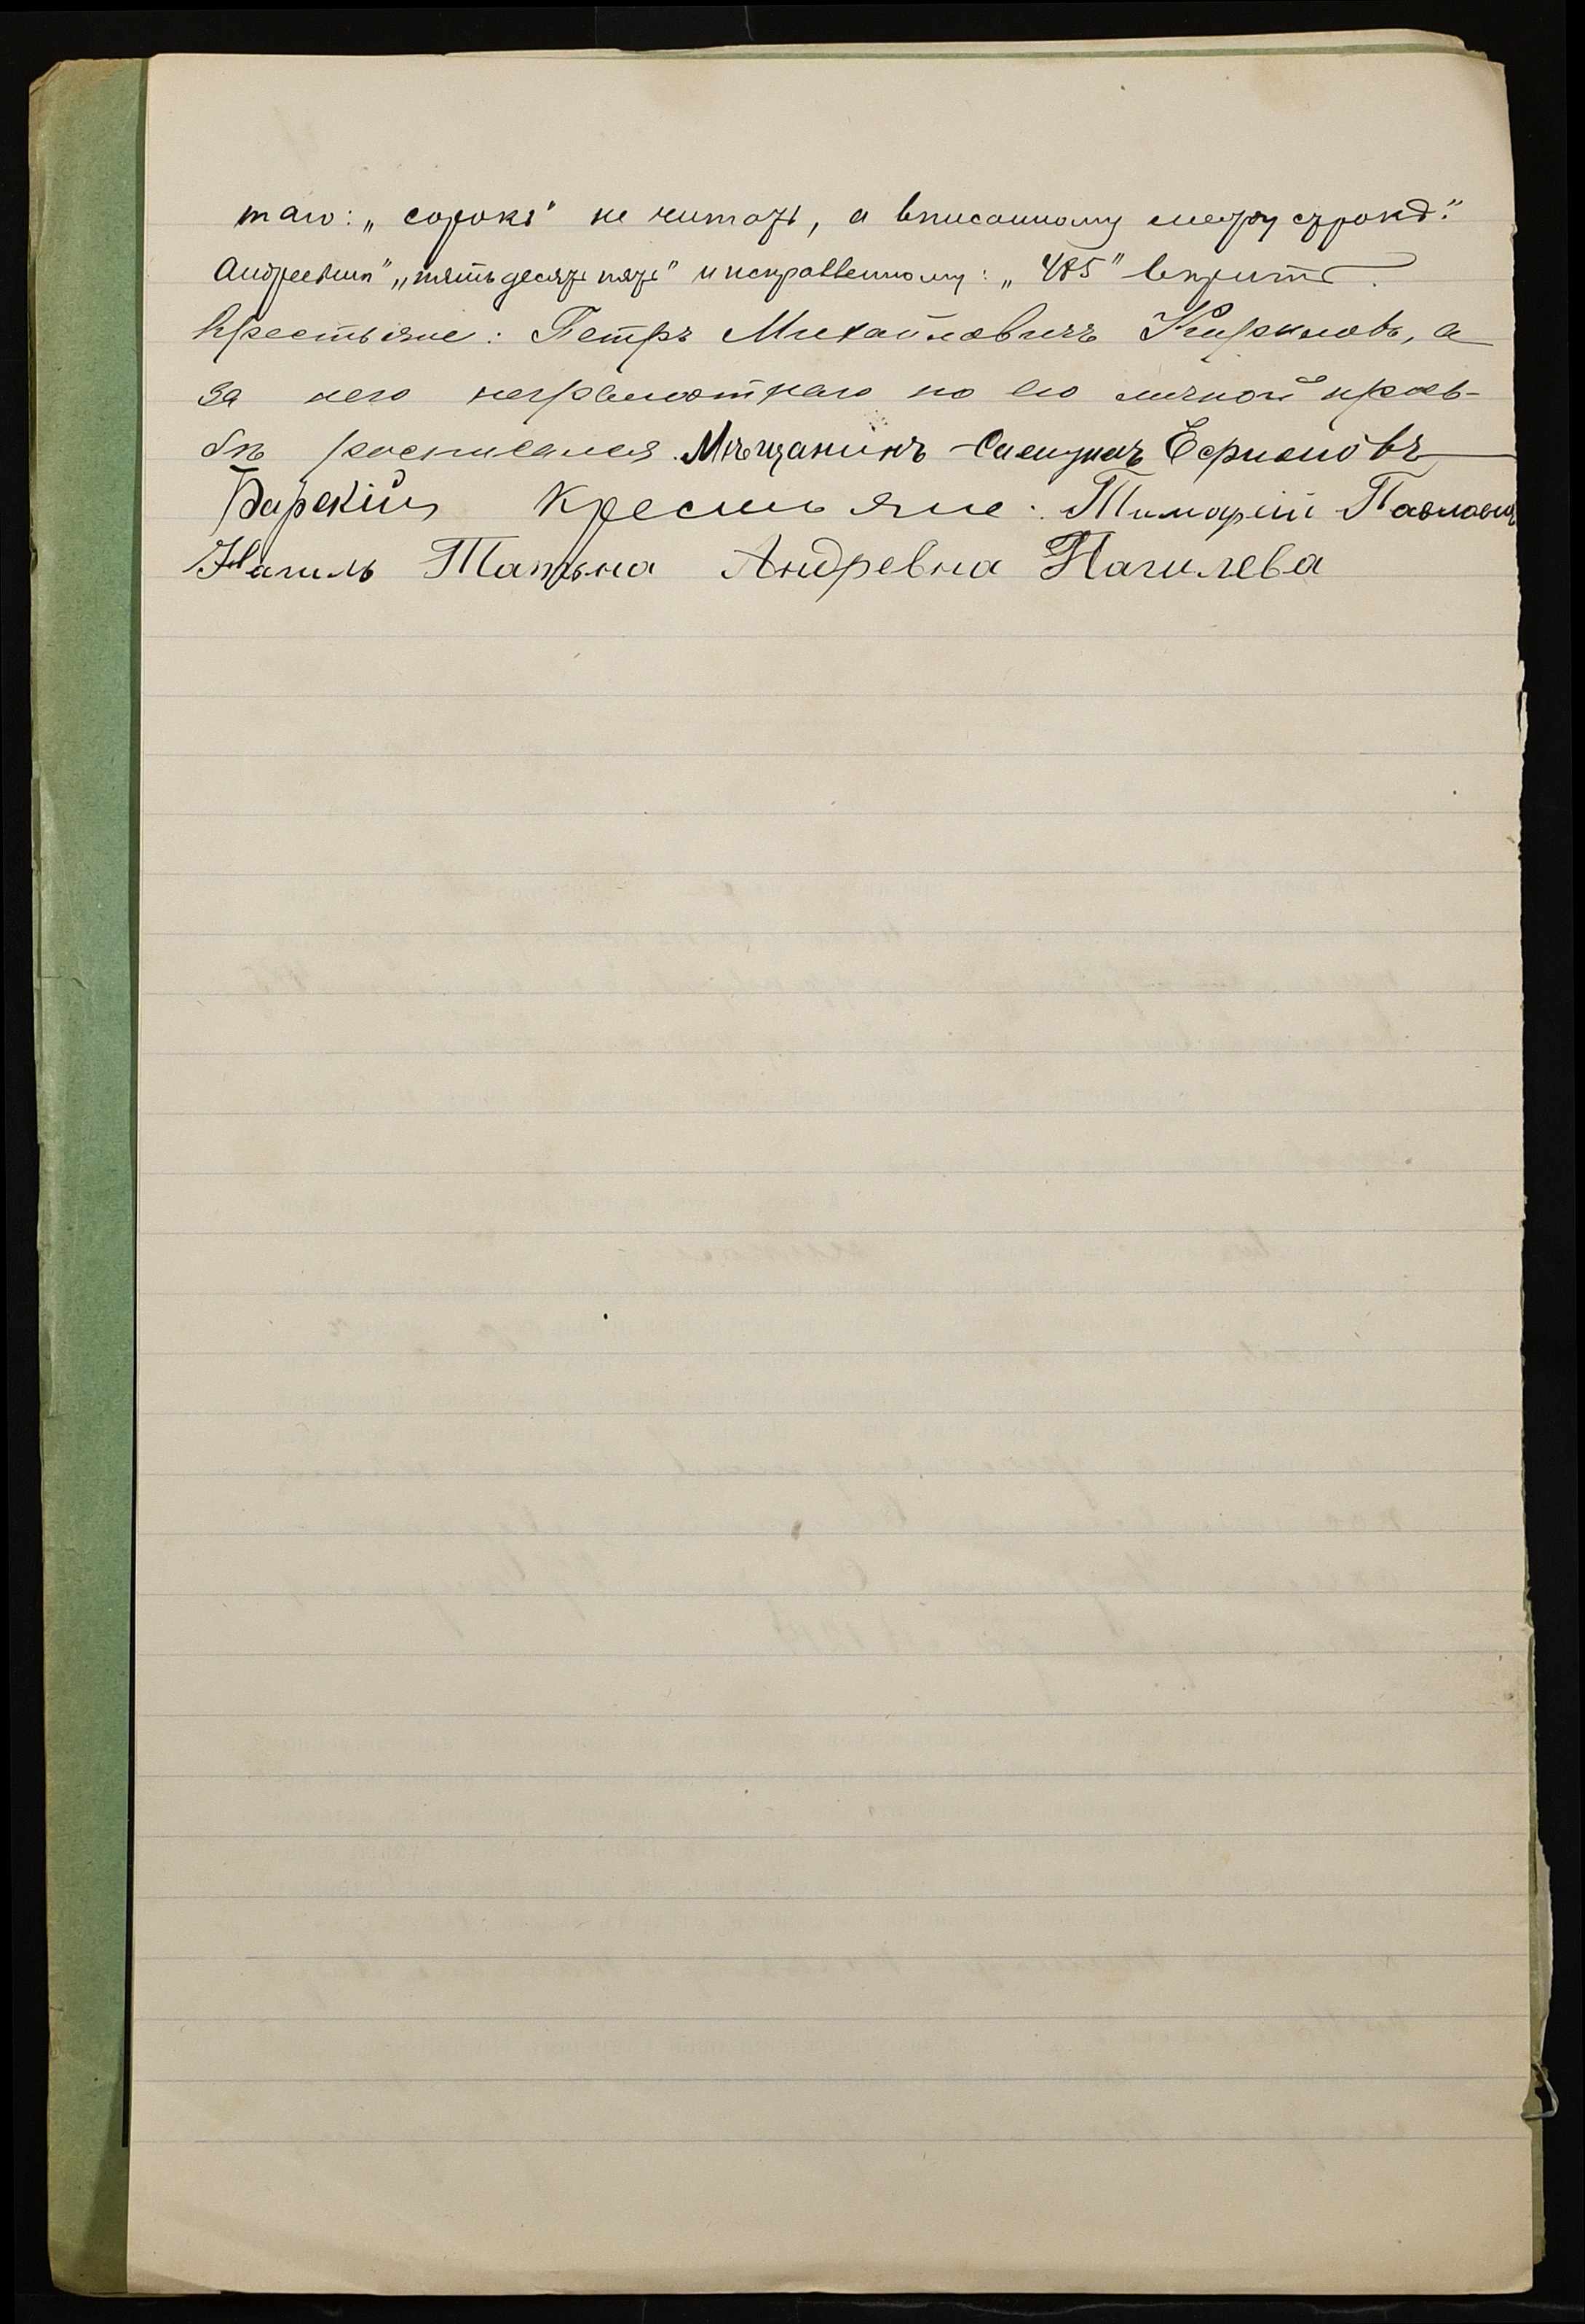 таго: „сорокъ" не читать, а вписанному между строкъ:"
Андреевни" „пятьдесятъ пять" и исправленному: „485" верить.
Крестьяне: Петръ Михайловичъ Киркловъ, а
за него неграмотнаго по его личной прось-
бѣ росписался Мѣщанинъ Ефримовъ
Барскій Крестьяне: Тимофій Павлович
Нагиль Татьяна Андревна Нагилева